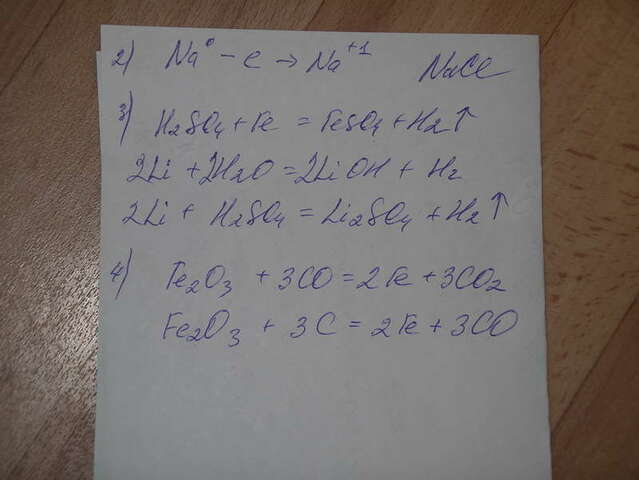 2) Na⁰ - e → Na⁺¹ NaCl
3) H₂SO₄ + Fe = FeSO₄ + H₂↑
2Li + 2H₂O = 2LiOH + H₂
2Li + H₂SO₄ = Li₂SO₄ + H₂↑
4) Fe₂O₃ + 3CO = 2Fe + 3CO₂
Fe₂O₃ + 3C = 2Fe + 3CO